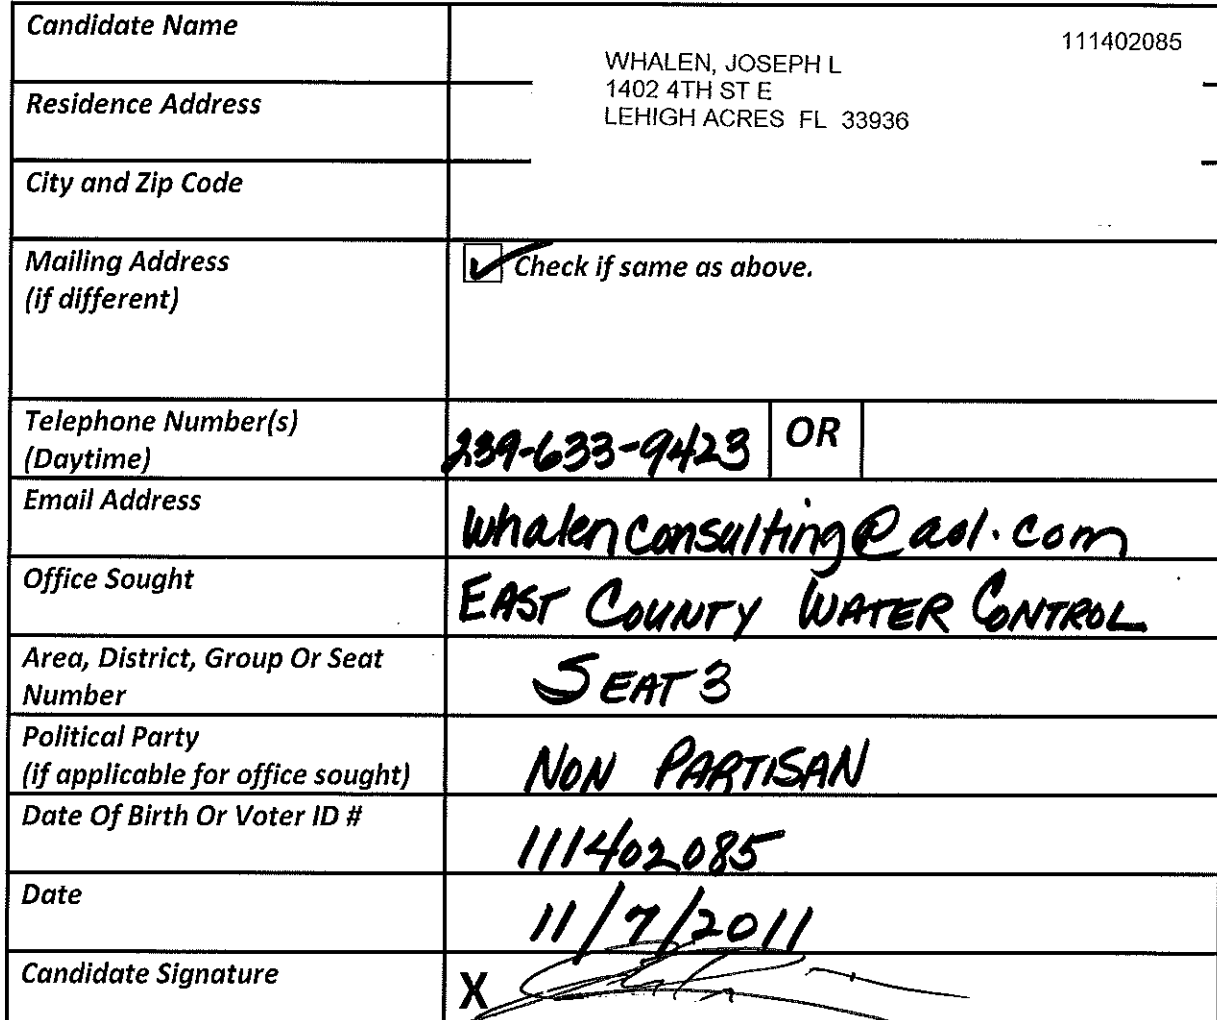 Candidate Name
111402085
WHALEN, JOSEPH L
1402 4TH ST E
LEHIGH ACRES FL 33936
Residence Address
City and Zip Code
Mailing Address
(if different)
Check if same as above.
Telephone Number(s)
(Daytime)
239-633-9423 OR
Email Address
whalenconsulting@aol.com
Office Sought
EAST COUNTY WATER CONTROL
Area, District, Group Or Seat
Number
SEAT 3
Political Party
(if applicable for office sought)
NON PARTISAN
Date Of Birth Or Voter ID #
111402085
Date
11/7/2011
Candidate Signature
X